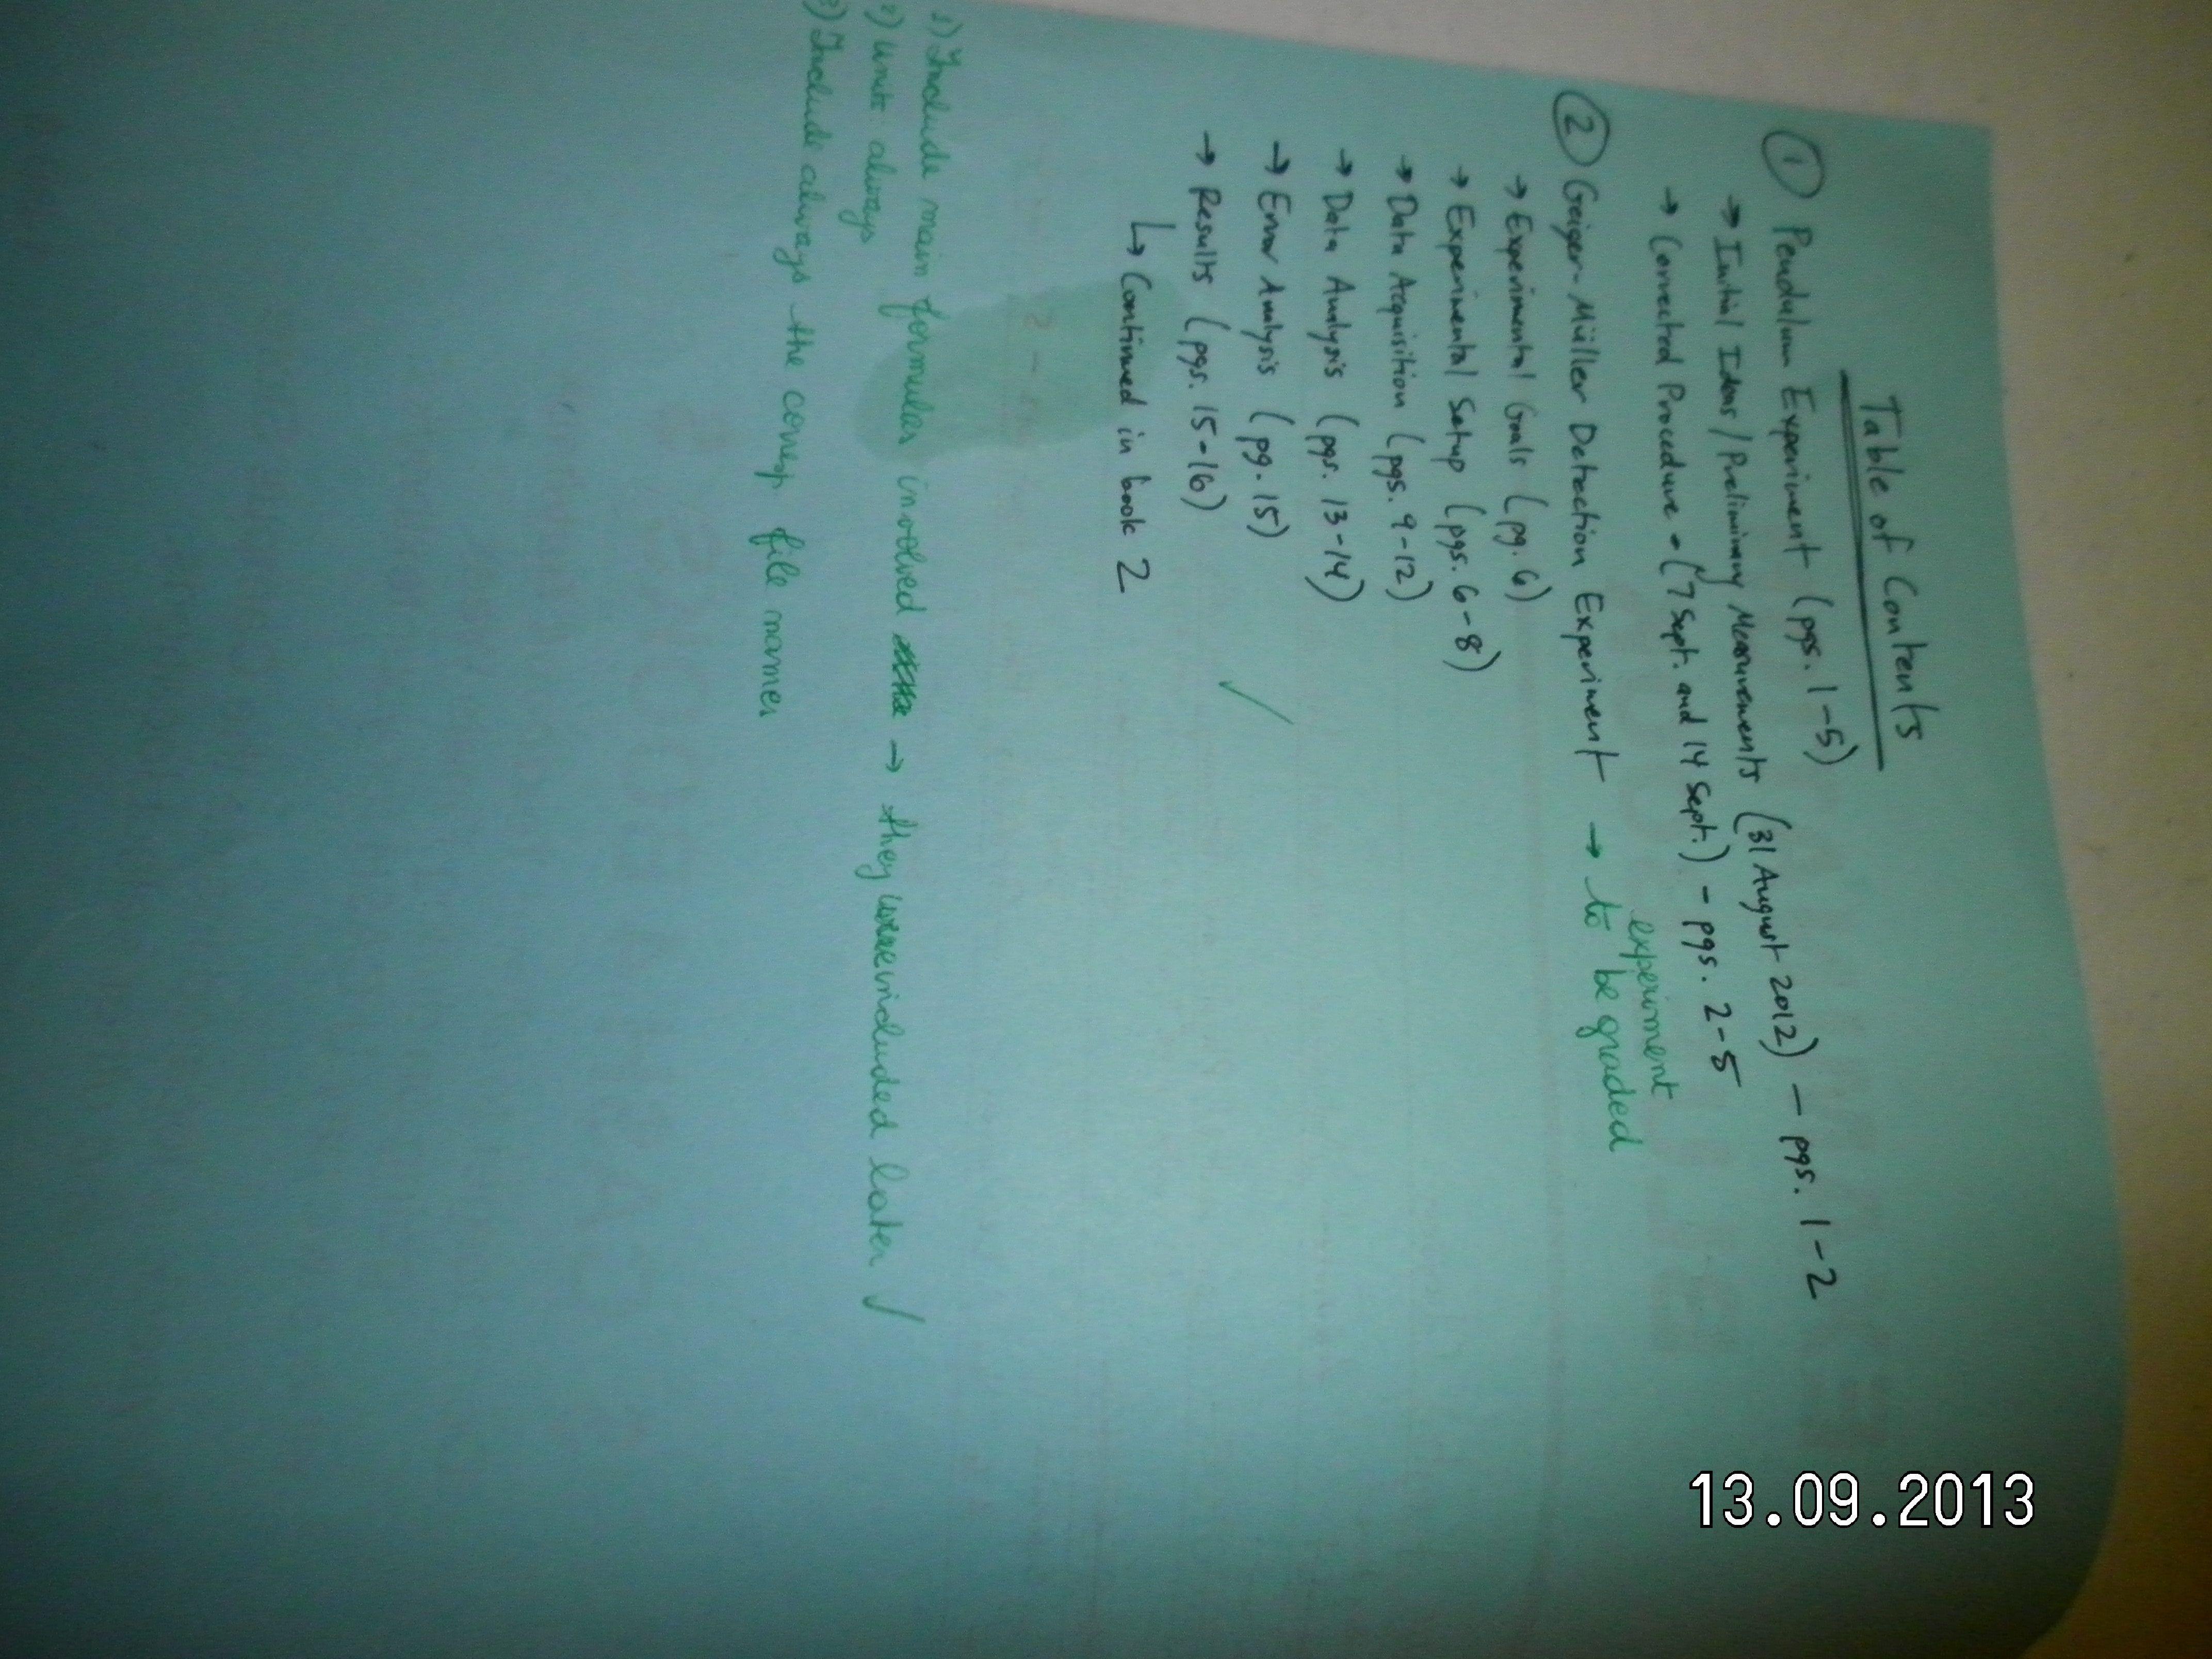 Table of Contents
① Pendulum Experiment (pgs. 1-5)
→ Initial Ideas / Preliminary Measurements (31 August 2012) - pgs. 1-2
→ Corrected Procedure - (7 Sept. and 14 Sept.) - pgs. 2-5
② Geiger-Müller Detection Experiment → experiment to be graded
→ Experimental Goals (pg. 6)
→ Experimental Setup (pgs. 6-8)
→ Data Acquisition (pgs. 9-12)
→ Data Analysis (pgs. 13-14)
→ Error Analysis (pg. 15)
→ Results (pgs. 15-16) ✓
↳ Continued in book 2
1) Include main formulas involved → they were included later ✓
2) units always
3) Include always the corresp. file names
13.09.2013